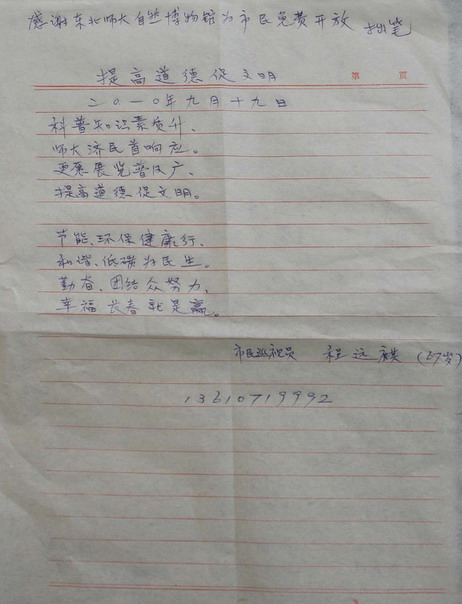 感谢东北师大自然博物馆为市民免费开放 拙笔
第 页
提高道德促文明
二〇一〇年九月十九日
科普知识素质升、
师大济民首响应。
更展展览普及广、
提高道德促文明。
节能、环保健康行、
和谐、低碳为民生。
勤奋、团结众努力、
幸福长春就是赢。
市民巡视员 程远 (67岁)
13610719992